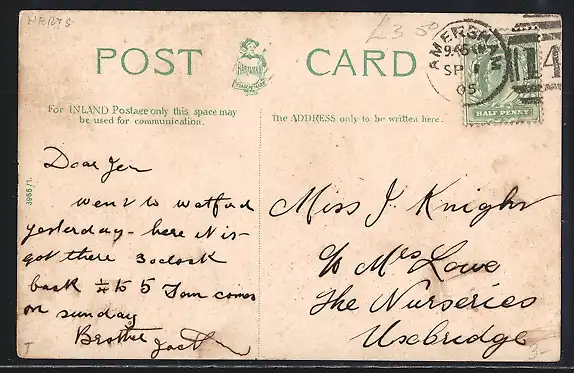 HERTS
£3.50
POST CARD
HARTMANN
For INLAND Postage only this space may
be used for communication.
The ADDRESS only to be written here.
3955/1.
AMERSHAM
SP 1
05
14
HALF PENNY
Dear Jen
went to watford
yesterday - here it is
got there 3 oclock
back ¼ to 5 Tom comes
on sunday
Brother Jack
Miss J Knight
c/o Mrs Lowe
The Nurseries
Uxbridge